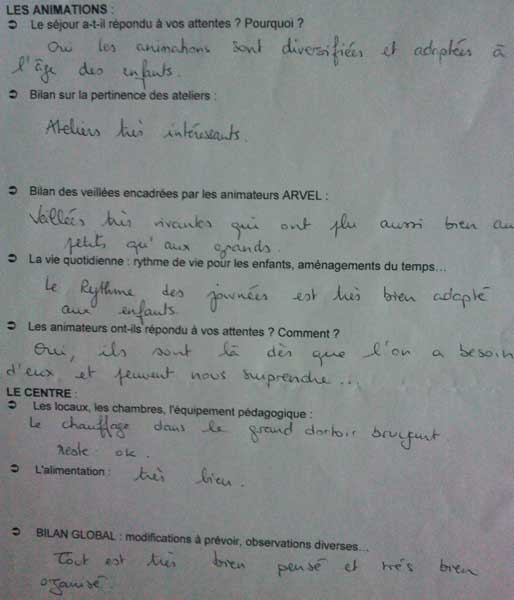 LES ANIMATIONS :
➲ Le séjour a-t-il répondu à vos attentes ? Pourquoi ?
Oui les animations sont diversifiées et adaptées à
l'âge des enfants.
➲ Bilan sur la pertinence des ateliers :
Ateliers très intéressants.
➲ Bilan des veillées encadrées par les animateurs ARVEL :
Veillées très vivantes qui ont plu aussi bien au
petits qu'aux grands.
➲ La vie quotidienne : rythme de vie pour les enfants, aménagements du temps...
Le Rythme des journées est très bien adapté
aux enfants.
➲ Les animateurs ont-ils répondu à vos attentes ? Comment ?
Oui, ils sont là dès que l'on a besoin
d'eux et peuvent nous surprendre...
LE CENTRE :
➲ Les locaux, les chambres, l'équipement pédagogique :
Le chauffage dans le grand dortoir bruyant.
reste ok.
➲ L'alimentation :
très bien.
➲ BILAN GLOBAL : modifications à prévoir, observations diverses...
Tout est très bien pensé et très bien
organisé.